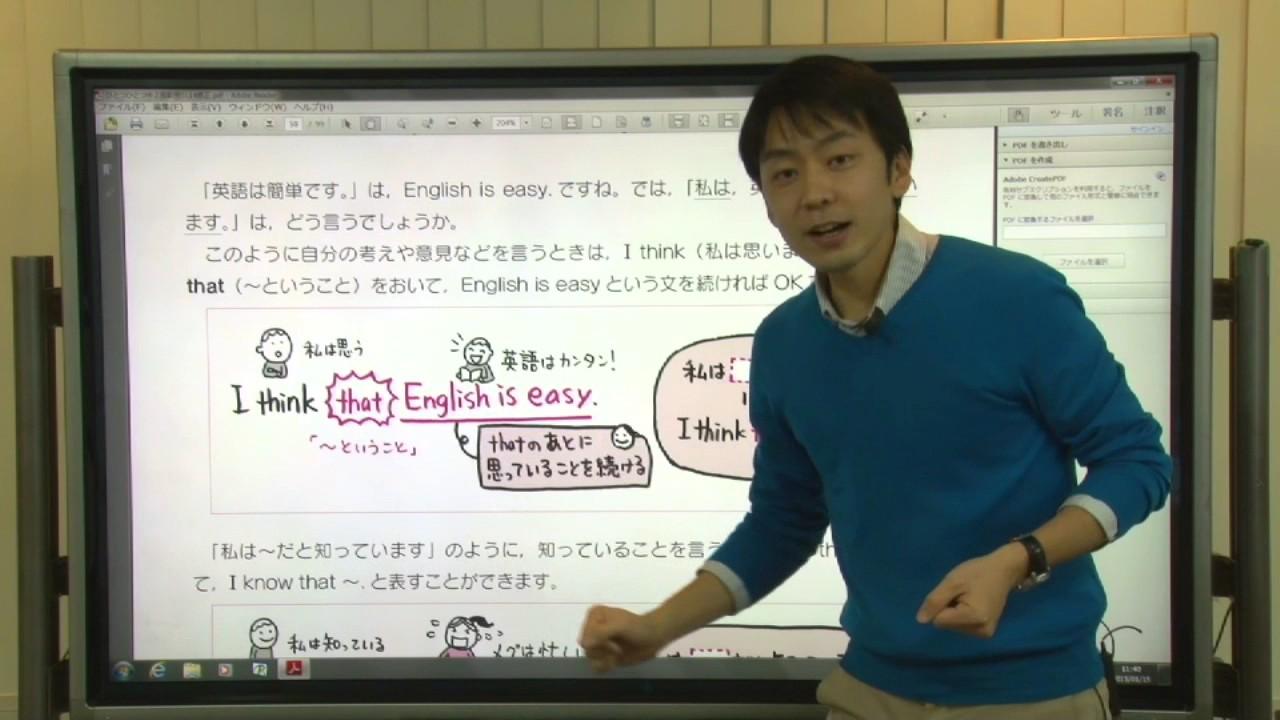 ファイル(F) 編集(E) 表示(V) ウィンドウ(W) ヘルプ(H)
204%
ツール 署名 注釈
サインイン
PDF を書き出し
PDF を作成
Adobe CreatePDF
PDF に変換するファイルを選択
ファイルを選択
「英語は簡単です。」は，English is easy. ですね。では，「私は，
ます。」は，どう言うでしょうか。
このように自分の考えや意見などを言うときは，I think（私は思いま
that（〜ということ）をおいて，English is easy という文を続ければ OK
私は思う
英語はカンタン!
I think that English is easy.
「〜ということ」
thatのあとに
思っていることを続ける
私は
I think
「私は〜だと知っています」のように，知っていることを言う
て，I know that 〜. と表すことができます。
私は知っている
メグは忙しい
11:40